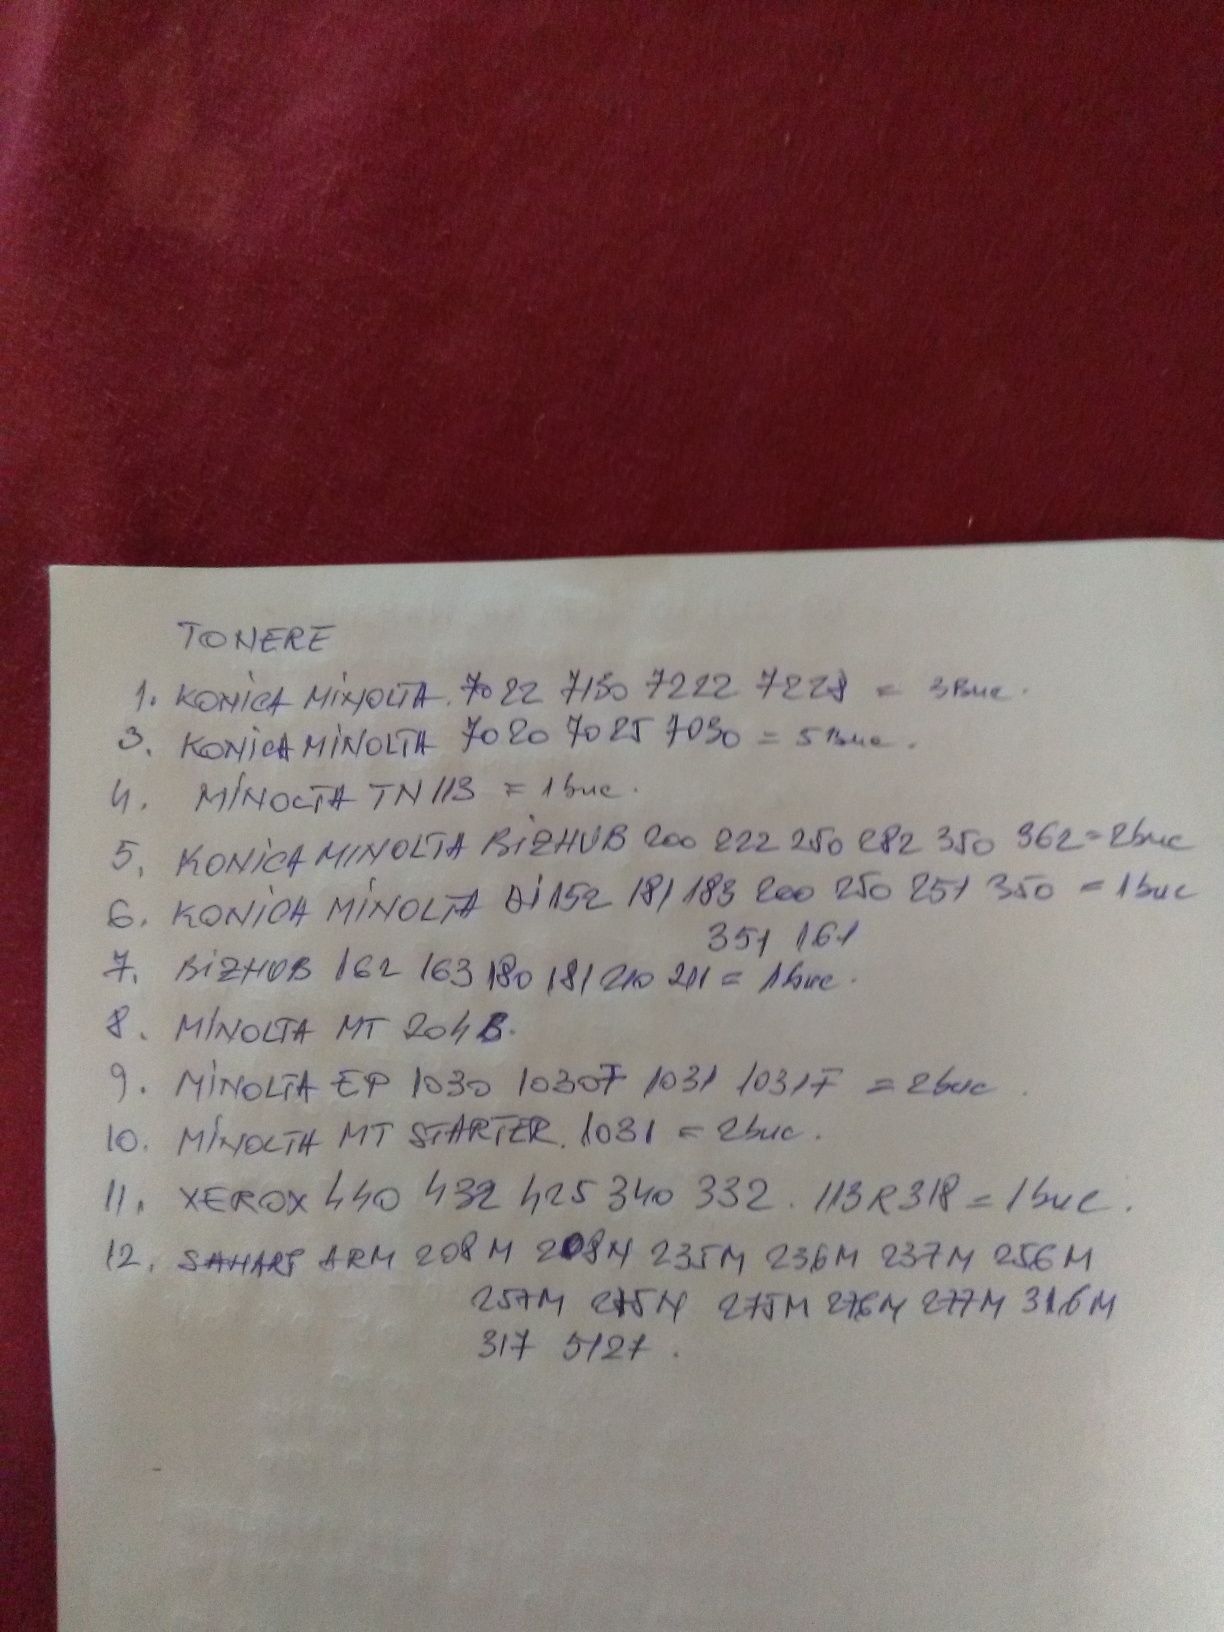 TONERE
1. KONICA MINOLTA. 7022 7130 7222 7228 = 3Buc.
3. KONICA MINOLTA 7020 7025 7030 = 5Buc.
4. MINOLTA TN 113 = 1buc.
5. KONICA MINOLTA BIZHUB 200 222 250 282 350 362=2buc
6. KONICA MINOLTA Di 152 181 183 200 250 251 350 = 1buc
351 161
7. BIZHUB 162 163 180 181 210 211 = 1buc.
8. MINOLTA MT 204 B.
9. MINOLTA EP 1030 1030F 1031 1031F = 2buc.
10. MINOLTA MT STARTER. 1031 = 2buc.
11. XEROX 440 432 425 340 332. 113R318 = 1buc.
12. SAHARP ARM 208M 208M 235M 236M 237M 256M
257M 275M 275M 276M 277M 316M
317 5127.